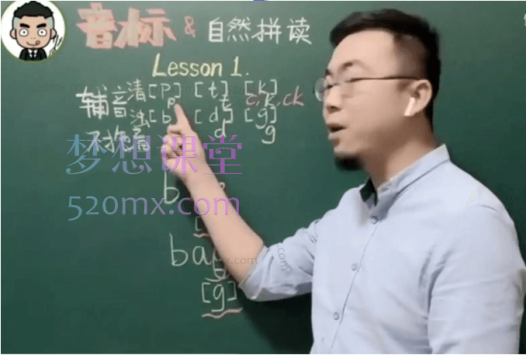 音标 & 自然拼读
Lesson 1.
辅音 清 [p] [t] [k]
p t c, k, ck
浊 [b] [d] [g]
b d g
梦想课堂
520mx.com
bag
[g]